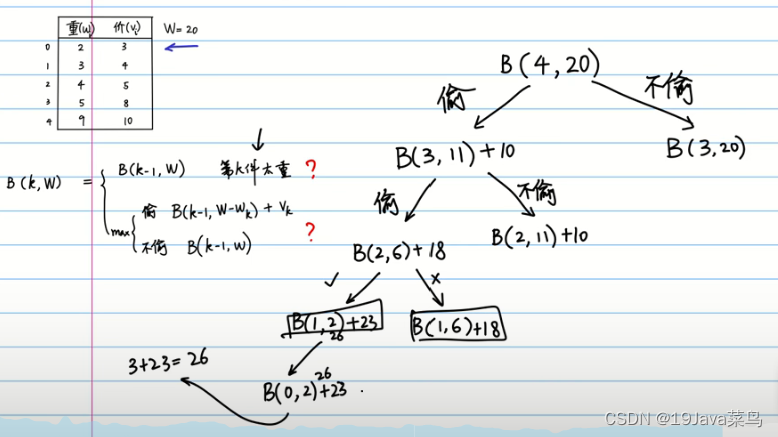 重(wᵢ) 价(vᵢ) W=20
0 2 3
1 3 4
2 4 5
3 5 8
4 9 10
B(k,W) =
B(k-1, W) 第k件太重 ?
max
偷 B(k-1, W-wₖ) + vₖ
不偷 B(k-1, W)
?
B(4,20)
偷 不偷
B(3,11)+10 B(3,20)
偷 不偷
B(2,6)+18 B(2,11)+10
✓ ×
B(1,2)+23 B(1,6)+18
26
B(0,2)+23
26
3+23=26
CSDN @19Java菜鸟